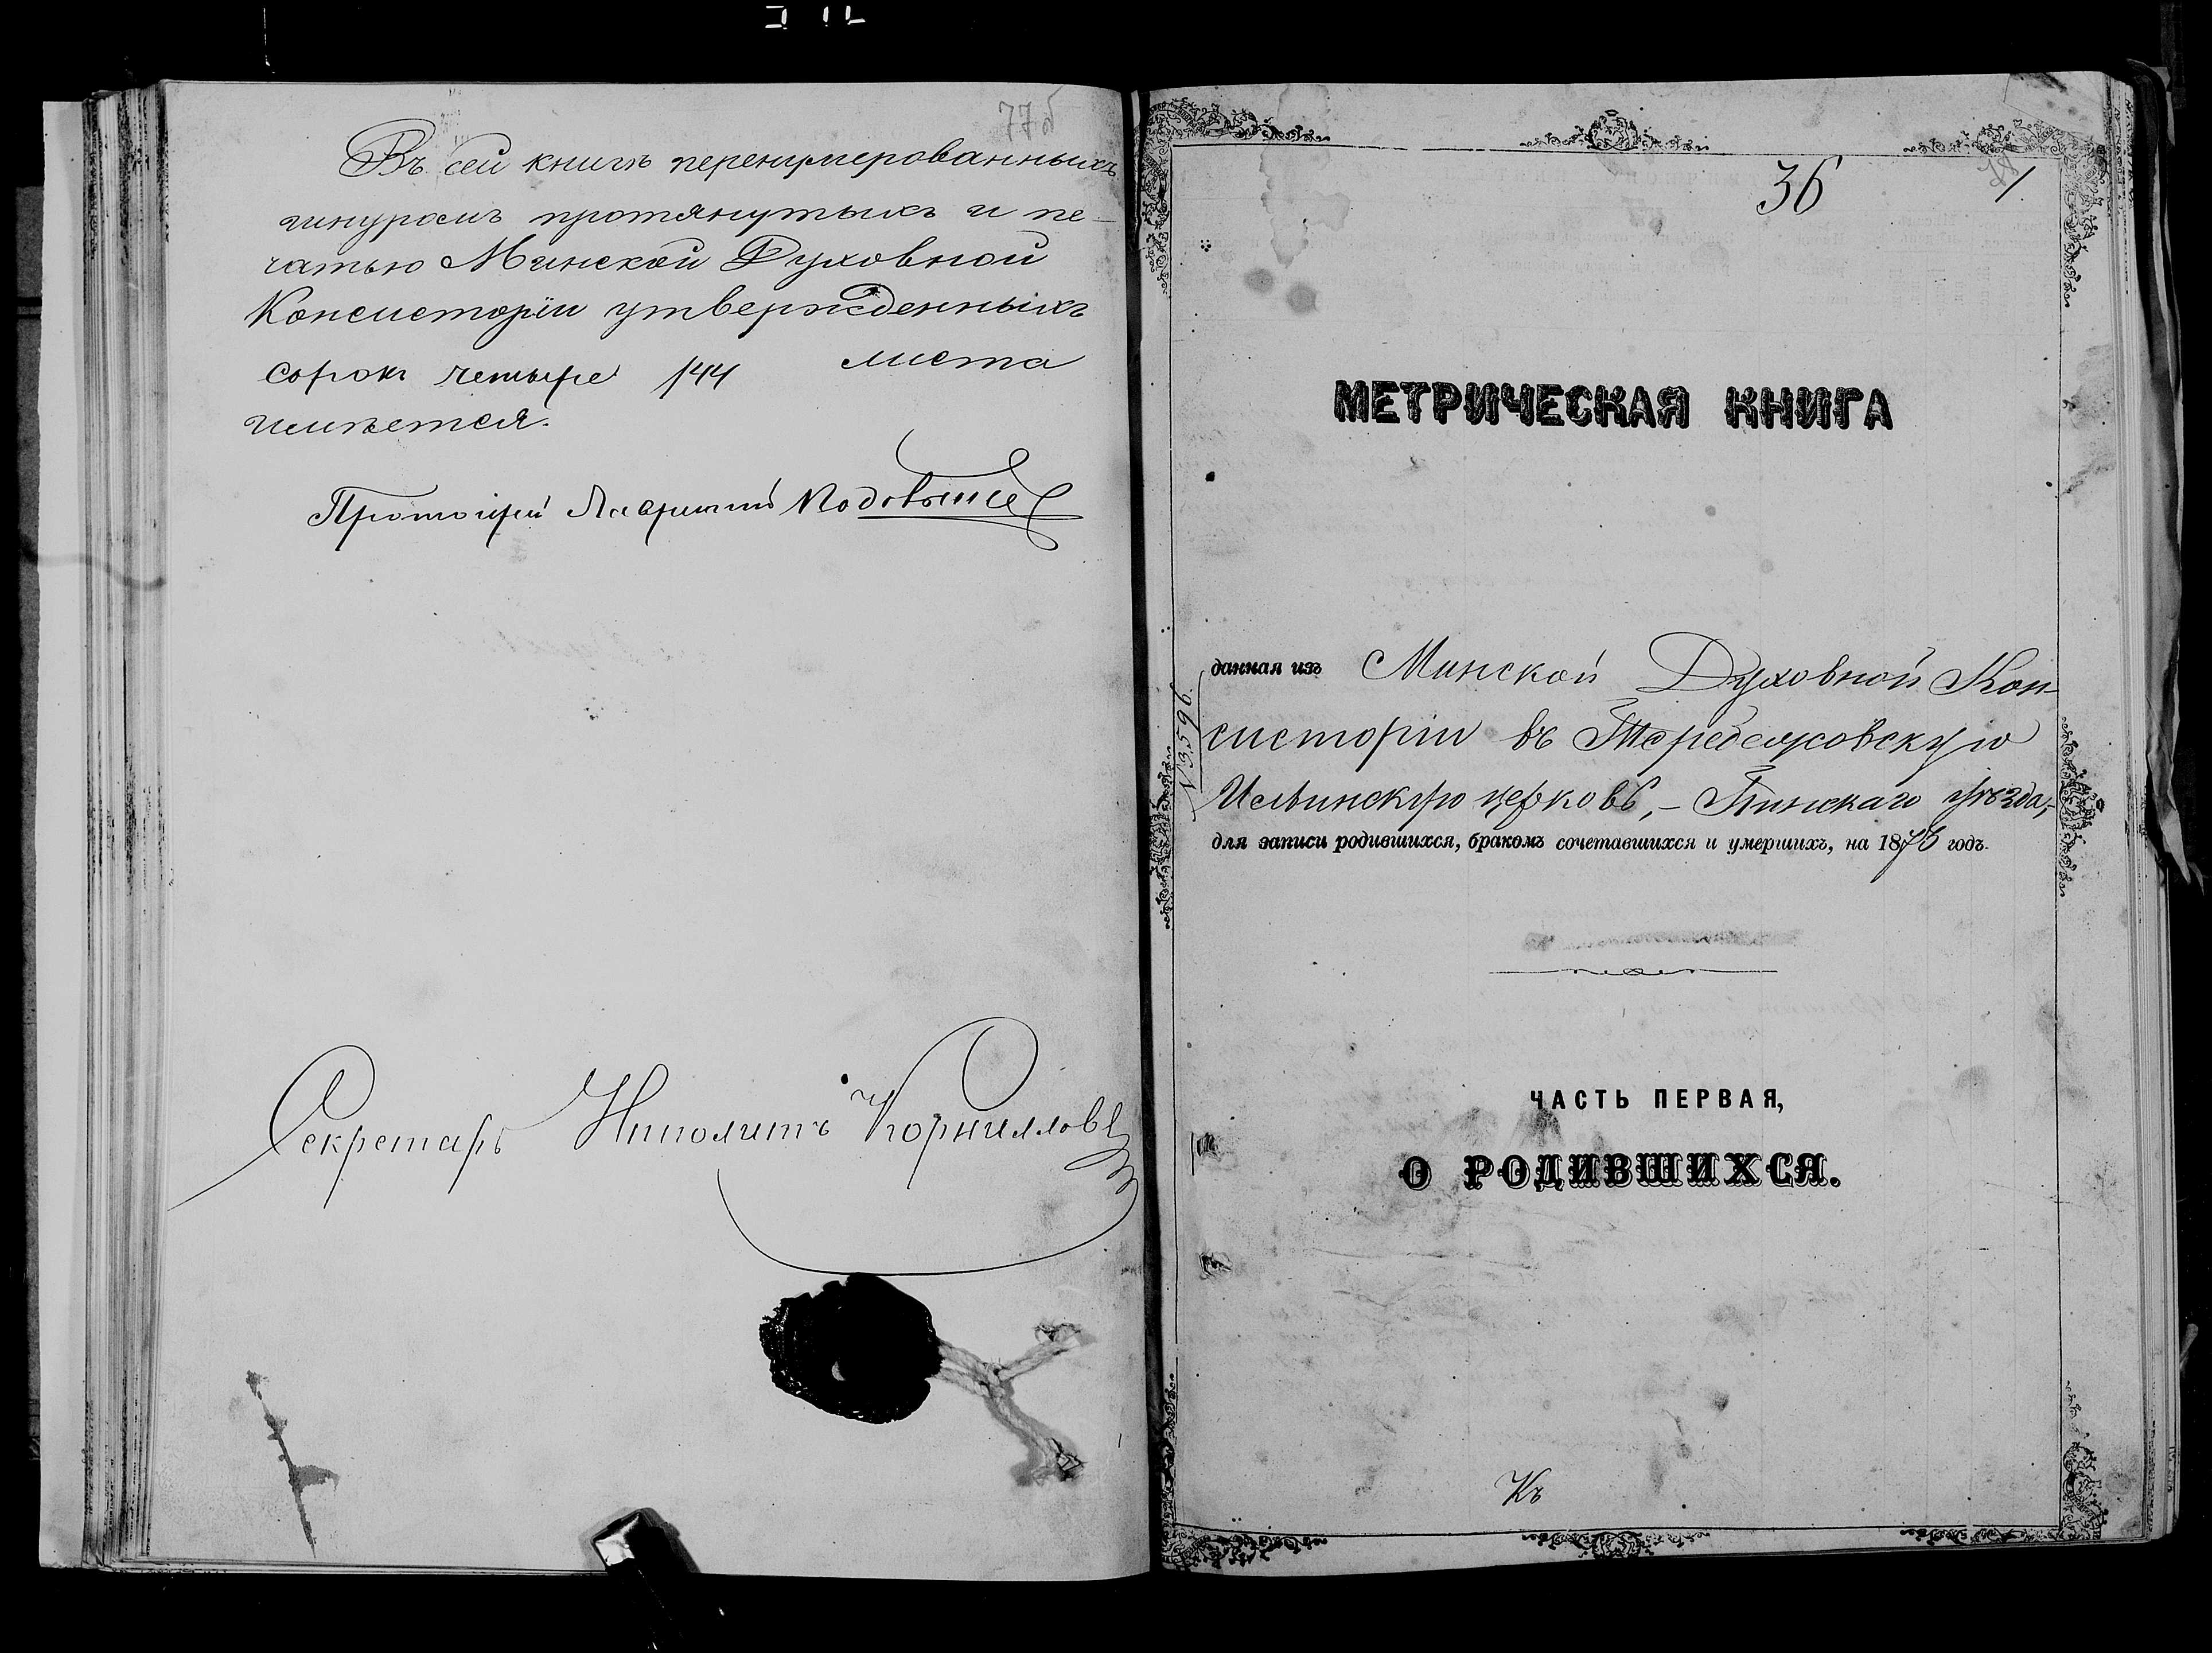 77об
Въ сей книгѣ перенумерованныхъ
шнуромъ протянутыхъ и пе-
чатью Минской Духовной
Консисторіи утвержденныхъ
сорокъ четыре /44 листа
имѣется.
Протоіерей Лаврентій
Секретарь Ипполитъ Корнилловъ
36
1.
МЕТРИЧЕСКАЯ КНИГА
№3596.
данная изъ Минской Духовной Кон-
систоріи въ Теребежовскую
Ильинскую церковь, – Пинскаго уѣзда,-
для записи родившихся, бракомъ сочетавшихся и умершихъ, на 1875 годъ.
ЧАСТЬ ПЕРВАЯ,
О РОДИВШИХСЯ.
Къ